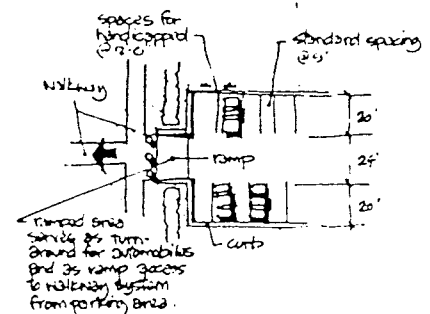 spaces for
handicapped
@ 12'0"
standard spacing
@ 9'
walkway
20'
ramp
24'
20'
curb
ramped area
serves as turn-
around for automobiles
and as ramp access
to walkway system
from parking area.